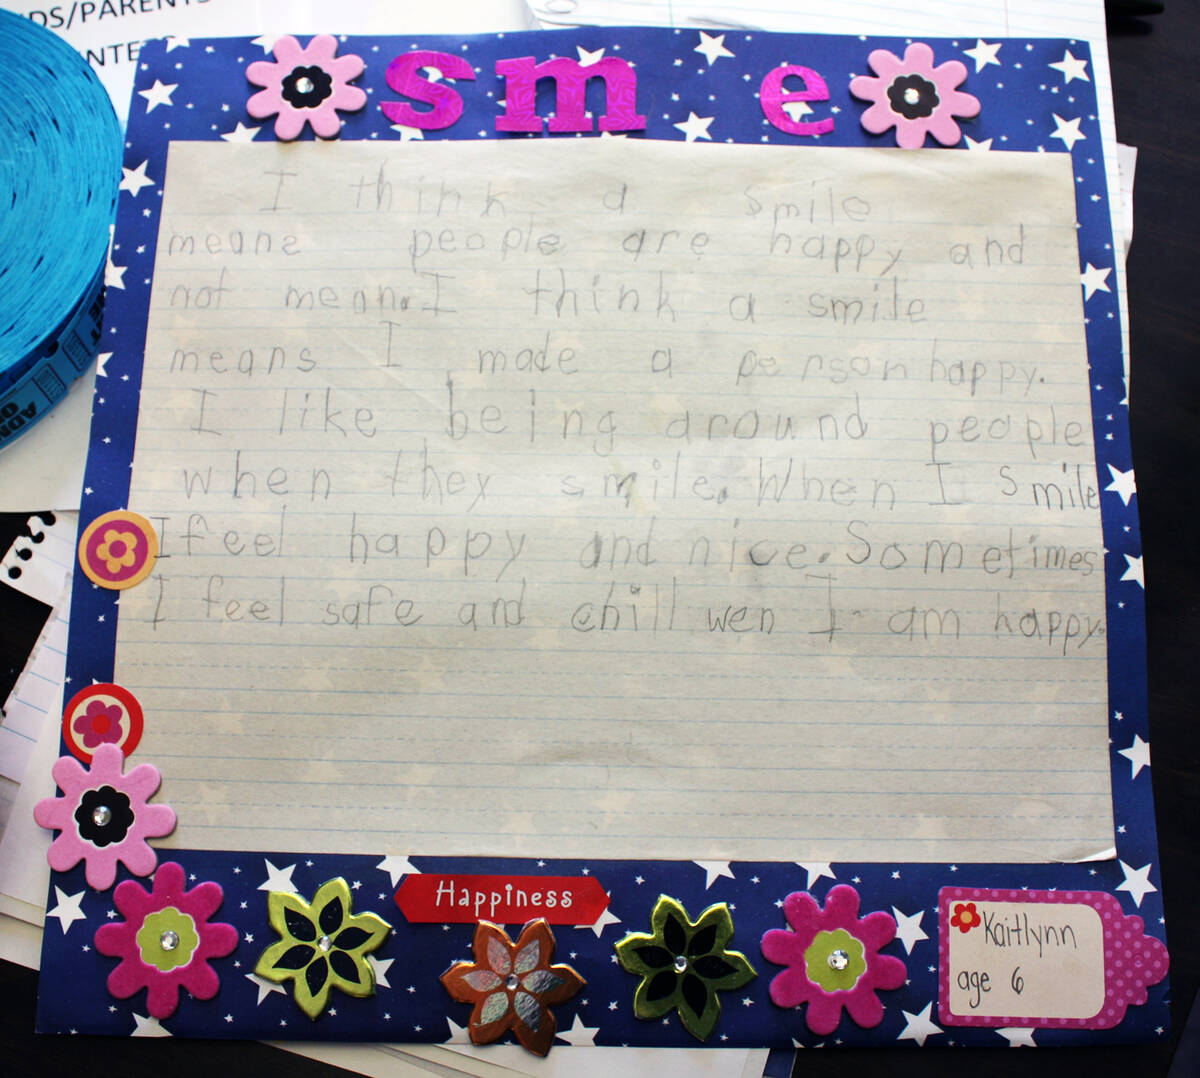 DS/PARENTS
NTE
sm e
I think a smile
means people are happy and
not mean. I think a smile
means I made a person happy.
I like being around people
when they smile. When I smile
I feel happy and nice. Sometimes
I feel safe and chill wen I am happy.
Happiness
Kaitlynn
age 6